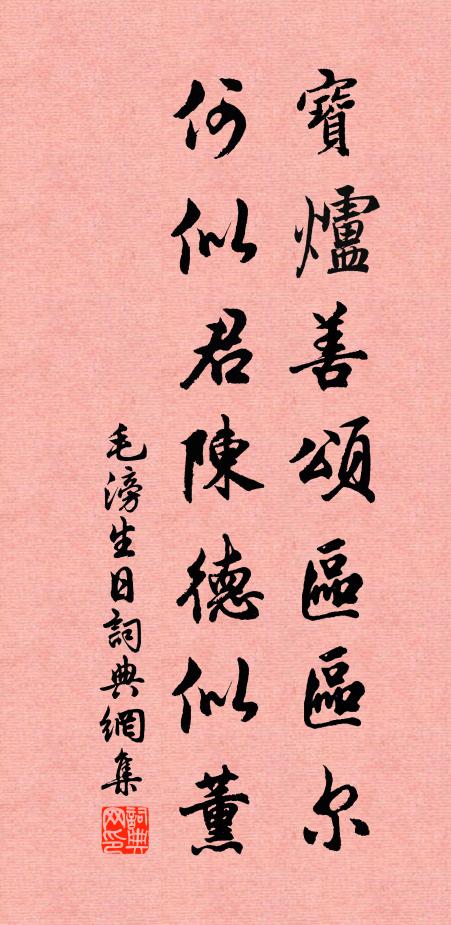 寶爐善頌區區尔
何似君陳德似薰
毛滂生日詞典網集
詞典網印